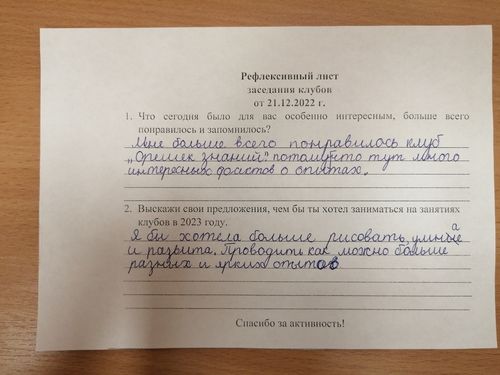 Рефлексивный лист
заседания клубов
от 21.12.2022 г.
1. Что сегодня было для вас особенно интересным, больше всего
понравилось и запомнилось?
Мне больше всего понравилось клуб
„Орешек знаний". потомушто тут много
интересных фактов о опытах.
2. Выскажи свои предложения, чем бы ты хотел заниматься на занятиях
клубов в 2023 году.
Я бы хотела больше рисовать, умная
и развита. Проводить как можно больше
разных и ярких опытов
Спасибо за активность!